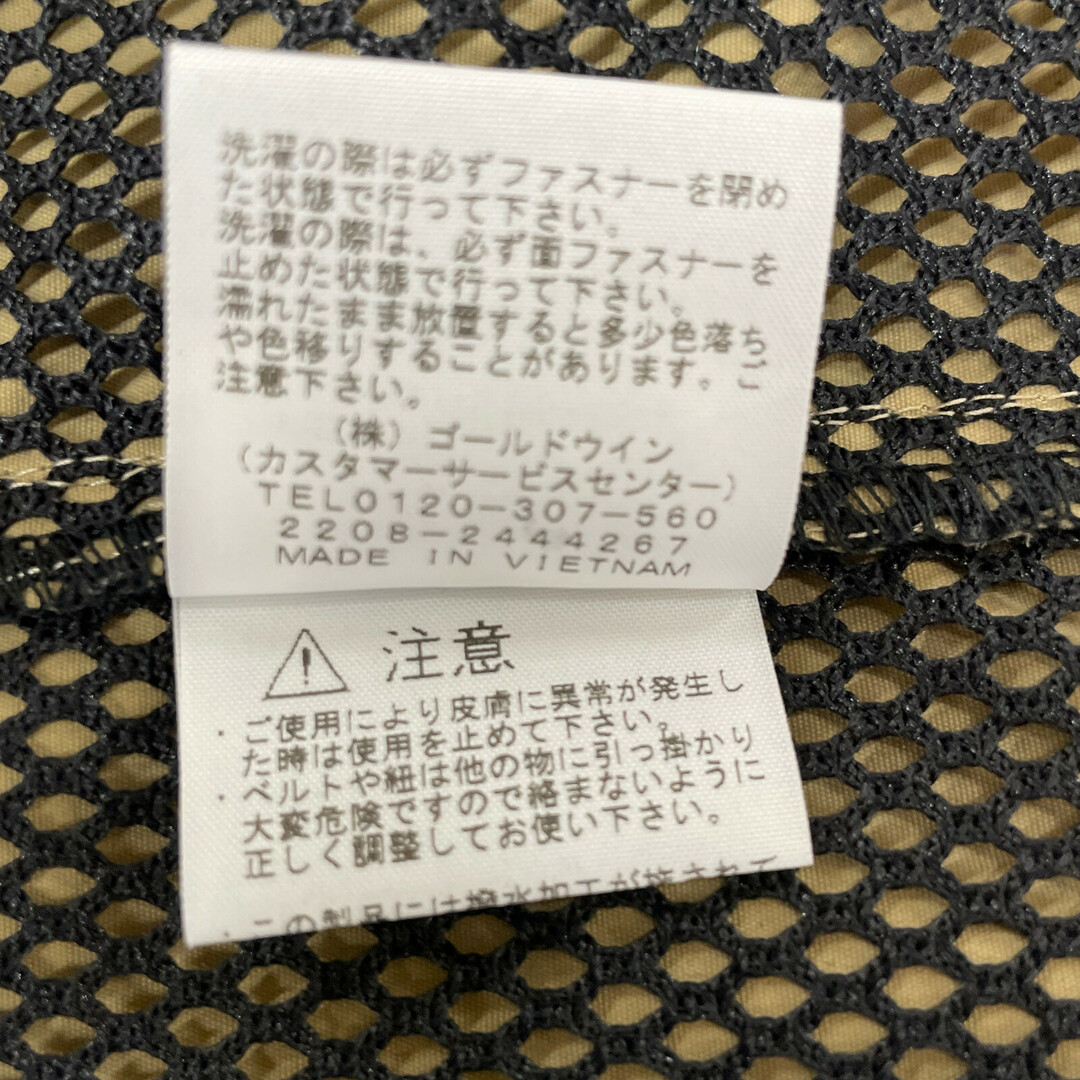 洗濯の際は必ずファスナーを閉め
た状態で行って下さい。
洗濯の際は、必ず面ファスナーを
止めた状態で行って下さい。
濡れたまま放置すると多少色落ち
や色移りすることがあります。ご
注意下さい。
(株)ゴールドウイン
(カスタマーサービスセンター)
TEL0120-307-560
2208-2444267
MADE IN VIETNAM
注意
・ご使用により皮膚に異常が発生し
た時は使用を止めて下さい。
・ベルトや紐は他の物に引っ掛かり
大変危険ですので絡まないように
正しく調整してお使い下さい。
・この製品には撥水加工が施されて